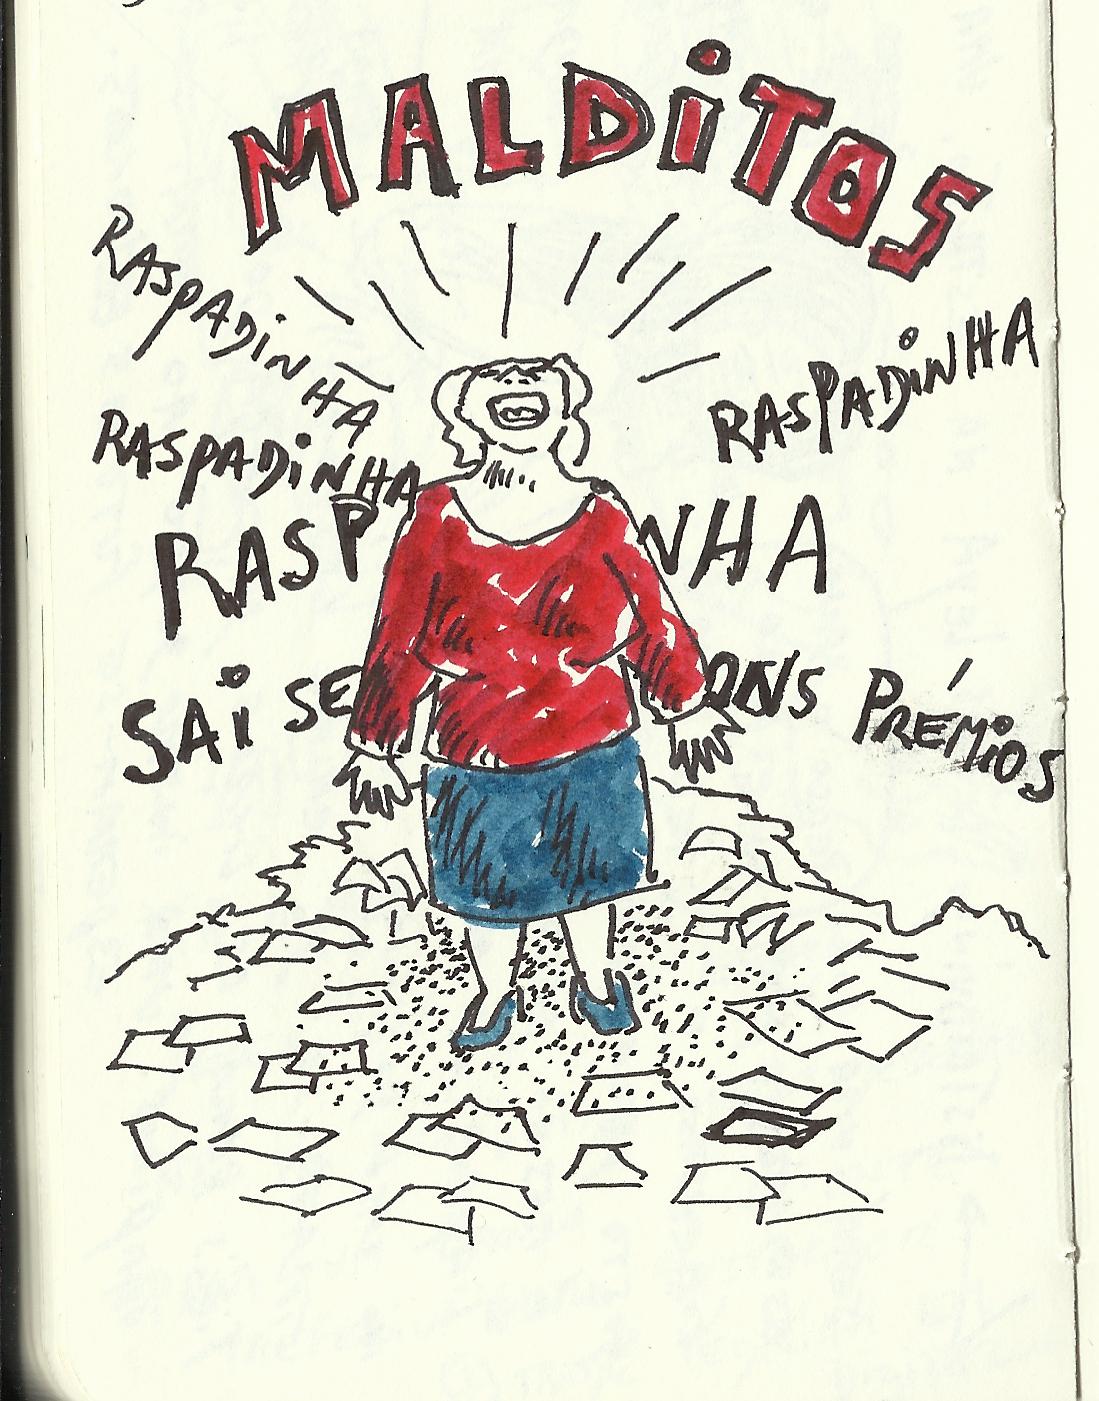 MALDiTOS
RASPADiNHA
RASPADiNHA
RASPADiNHA
RASP NHA
SAi SE PRÉMiOS